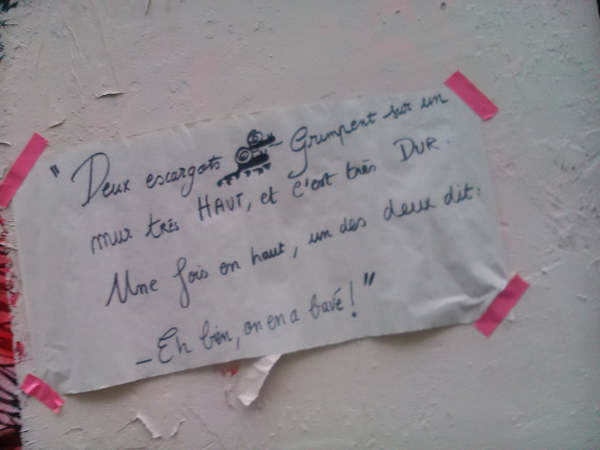 " Deux escargots Grimpent sur un
mur très HAUT, et c'est très DUR.
Une fois en haut, un des deux dit:
– Eh bien, on en a bavé! "